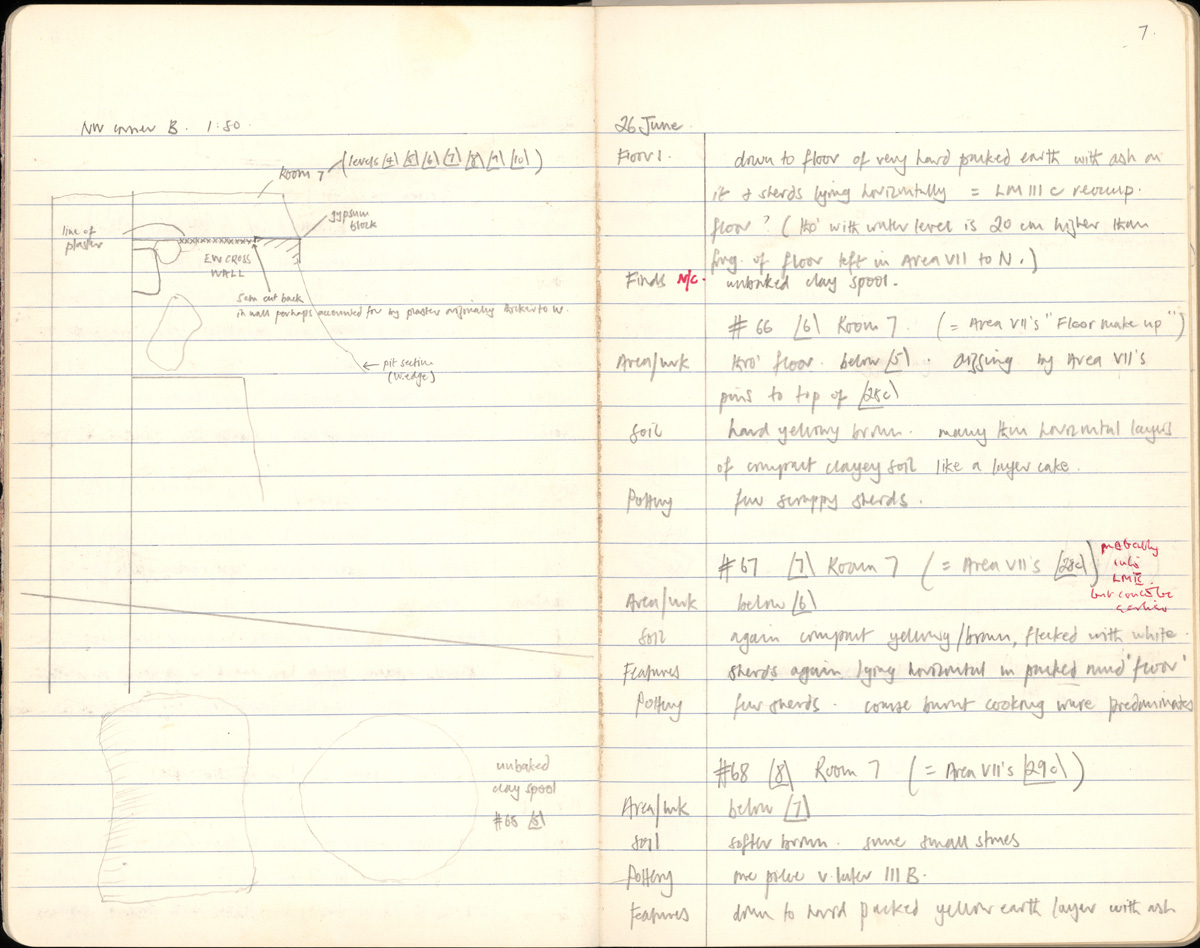 NW corner B. 1:50.
Room 7 (levels [4] [5] [6] [7] [8] [9] [10])
gypsum
block
line of
plaster
EW CROSS
WALL
5cm cut back
in wall perhaps accounted for by plaster originally thicker to W.
← pit section
(wedge)
unbaked
clay spool
#65 [5]
7.
26 June
Floor 1. down to floor of very hard packed earth with ash on
it & sherds lying horizontally = LM III C reoccup.
floor? (tho' with water level is 20 cm higher than
frag. of floor left in Area VII to N.)
Finds N/C. unbaked clay spool.
#66 [6] Room 7. (= Area VII's "Floor make up")
Area/wk thro' floor. below [5]. digging by Area VII's
pins to top of [28c]
Soil hard yellowy brown. many thin horizontal layers
of compact clayey soil like a layer cake.
Pottery few scrappy sherds.
#67 [7] Room 7 (= Area VII's [28c])
probably
LM III
but could be
earlier
Area/wk below [6]
Soil again compact yellowy/brown, flecked with white.
Features sherds again lying horizontal in packed mud 'floor'
Pottery few sherds. coarse burnt cooking ware predominates
#68 [8] Room 7 (= Area VII's [29c])
Area/wk below [7]
Soil softer brown. some small stones
Pottery one piece v. later III B.
Features down to hard packed yellow earth layer with ash